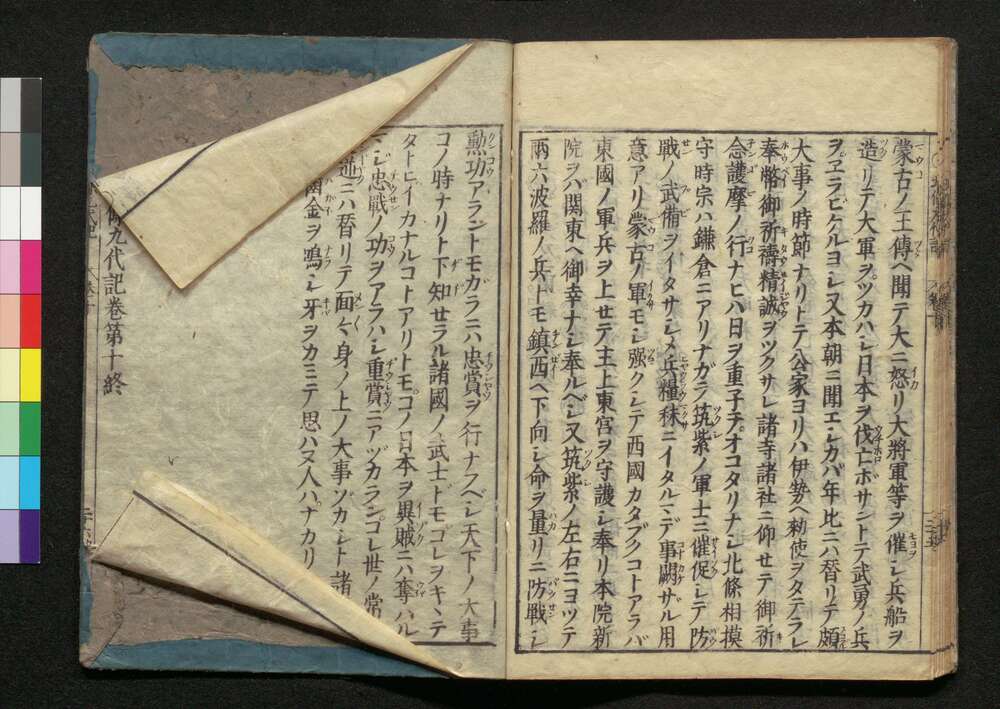 蒙古ノ王傳ヘ聞テ大ニ怒リ大將軍等ヲ催シ兵船ヲ
造リテ大軍ヲツカハシ日本ヲ伐亡ボサントテ武勇ノ兵
ヲエラビケルヨシ又本朝ニ聞エシカバ年比ニハ替リテ頗
大事ノ時節ナリトテ公家ヨリハ伊勢ヘ勅使ヲタテラレ
奉幣御祈禱精誠ヲツクサレ諸寺諸社ニ仰セテ御祈
念護摩ノ行ナヒハ日ヲ重子テオコタリナシ北條相摸
守時宗ハ鎌倉ニアリナガラ筑紫ノ軍士ニ催促シテ防
戰ノ武備ヲイタサシメ兵糧秣ニイタルマデ事闕ザル用
意アリ蒙古ノ軍モシ强クシテ西國カタブクコトアラバ
東國ノ軍兵ヲ上セテ主上東宮ヲ守護シ奉リ本院新
院ヲバ関東ヘ御幸ナシ奉ルベシ又筑紫ノ左右ニヨツテ
兩六波羅ノ兵ドモ鎭西ヘ下向シ命ヲ量リニ防戰シ
勲功アラントモガラニハ忠賞ヲ行ナフベシ天下ノ大事
コノ時ナリト下知セラル諸國ノ武士ドモコレヲキヽテ
タトヒイカナルコトアリトモコノ日本ヲ異賊ニハ奪ハル
マジ忠戰ノ功ヲアラハシ重賞ニアヅカランコレ世ノ常
ニハ替リテ面々身ノ上ノ大事ゾカシト諸
金ヲ鳴シ牙ヲカミテ思ハヌ人ハナカリ
九代記巻第十終